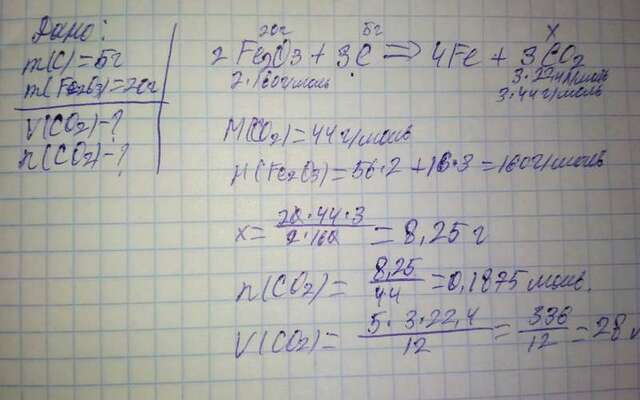 Дано:
m(C)=5г
m(Fe2O3)=20г
V(CO2)-?
n(CO2)-?
20г 5г x
2 Fe2O3 + 3C => 4Fe + 3CO2
2·160г/моль 3·22,4л/моль
3·44г/моль
M(CO2)=44г/моль
M(Fe2O3)=56·2+16·3=160г/моль
x= 20·44·3 / 2·160 = 8,25 г
n(CO2)= 8,25 / 44 =0,1875 моль.
V(CO2)= 5·3·22,4 / 12 = 336 / 12 =28